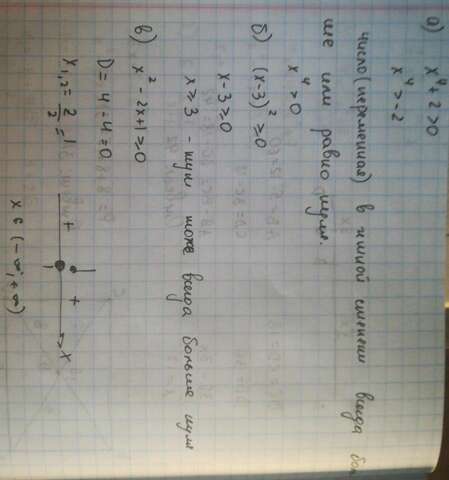 а) x⁴ + 2 > 0
x⁴ > -2
число (переменная) в чётной степени всегда боль
ше или равно нулю.
x⁴ > 0
б) (x-3)² ≥ 0
x - 3 ≥ 0
x ≥ 3 - тоже всегда больше нуля
в) x² - 2x + 1 ≥ 0
D = 4 - 4 = 0
x₁,₂ = 2/2 = 1
+ 1 + x
x ∈ (-∞; +∞)